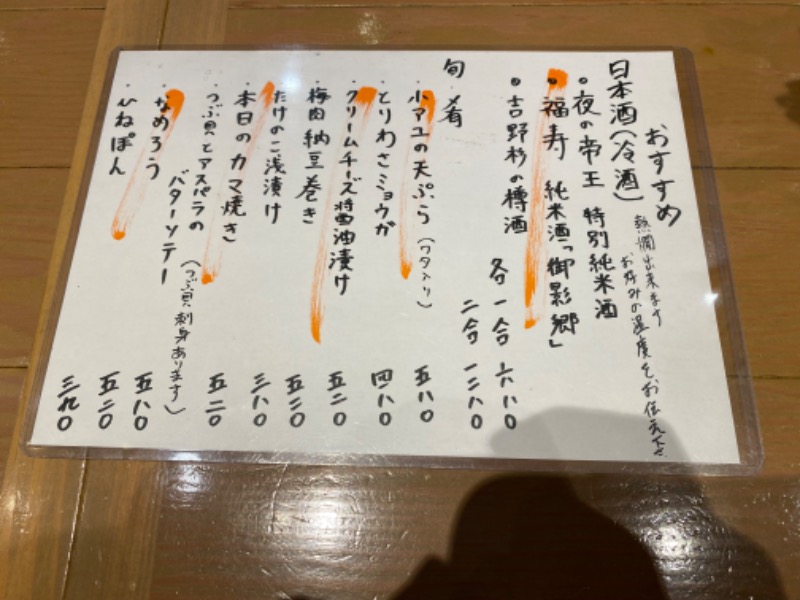 おすすめ
日本酒(冷酒)
熱燗出来ます
お好みの温度をお伝え下さ
・夜の帝王 特別純米酒
・福寿 純米酒「御影郷」
・吉野杉の樽酒
各一合 六八〇
二合 一二八〇
旬肴
・小アユの天ぷら(ワタ入り) 五八〇
・とりわさミョウガ 四八〇
・クリームチーズ醤油漬け 五二〇
・梅肉納豆巻き 五二〇
・たけのこ浅漬け 三八〇
・本日のカマ焼き 五二〇
・つぶ貝とアスパラの
バターソテー 五八〇
(つぶ貝刺身あります)
・なめろう 五二〇
・ひねぽん 三九〇